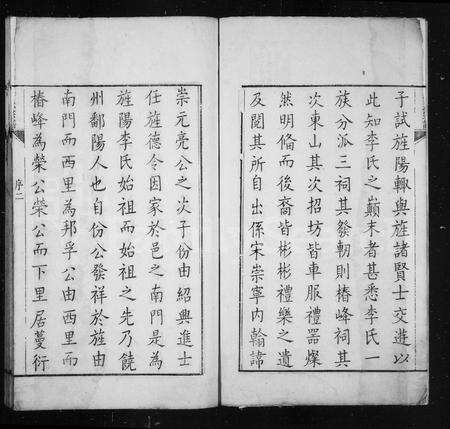 子試旌陽輙與旌諸賢士交遊以
此知李氏之巔末者甚悉李氏一
族分派三祠其發軔則椿峰祠其
次東山其次招坊皆車服禮器燦
然明偹而後裔皆彬彬禮樂之遺
及閱其所自出係宋崇寧內翰諱
崇元亮公之次子份由紹興進士
任旌德令因家於邑之南門是為
旌陽李氏始祖而始祖之先乃饒
州鄱陽人也自份公發祥於旌由
南門而西里為邦孚公由西里而
椿峰為榮公榮公而下里居蔓衍
序二